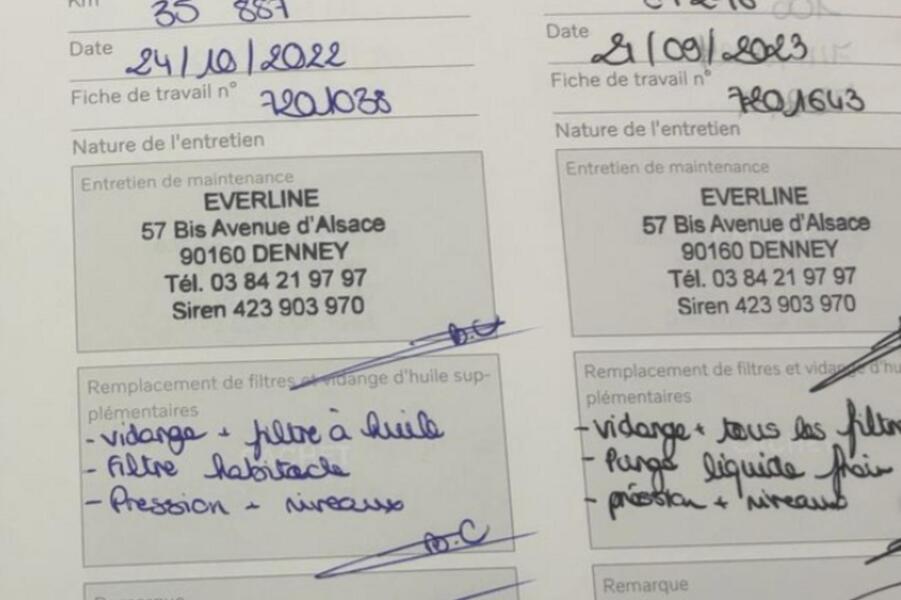 Km 35 887
Date 24/10/2022
Fiche de travail n° 7201038
Nature de l'entretien
Entretien de maintenance
EVERLINE
57 Bis Avenue d'Alsace
90160 DENNEY
Tél. 03 84 21 97 97
Siren 423 903 970
B.C
Remplacement de filtres et vidange d'huile sup-
plémentaires
- vidange + filtre à huile
- Filtre habitacle
- Pression + niveaux
B.C
Date 21/09/2023
Fiche de travail n° 7201643
Nature de l'entretien
Entretien de maintenance
EVERLINE
57 Bis Avenue d'Alsace
90160 DENNEY
Tél. 03 84 21 97 97
Siren 423 903 970
Remplacement de filtres et vidange d'hu
plémentaires
- vidange + tous les filtre
- Purge liquide frein
- préssion + niveaux
Remarque